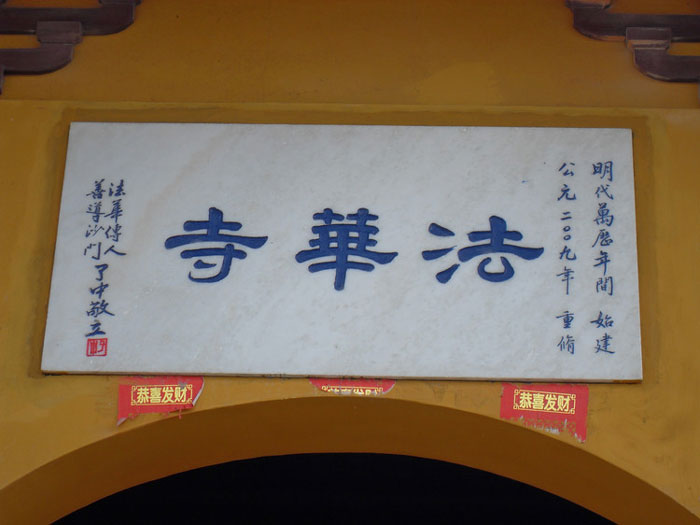 明代萬歷年間 始建
公元二〇〇九年 重脩
法華寺
法華傳人
善導沙門 了中敬立
恭喜发财
恭喜发财
恭喜发财